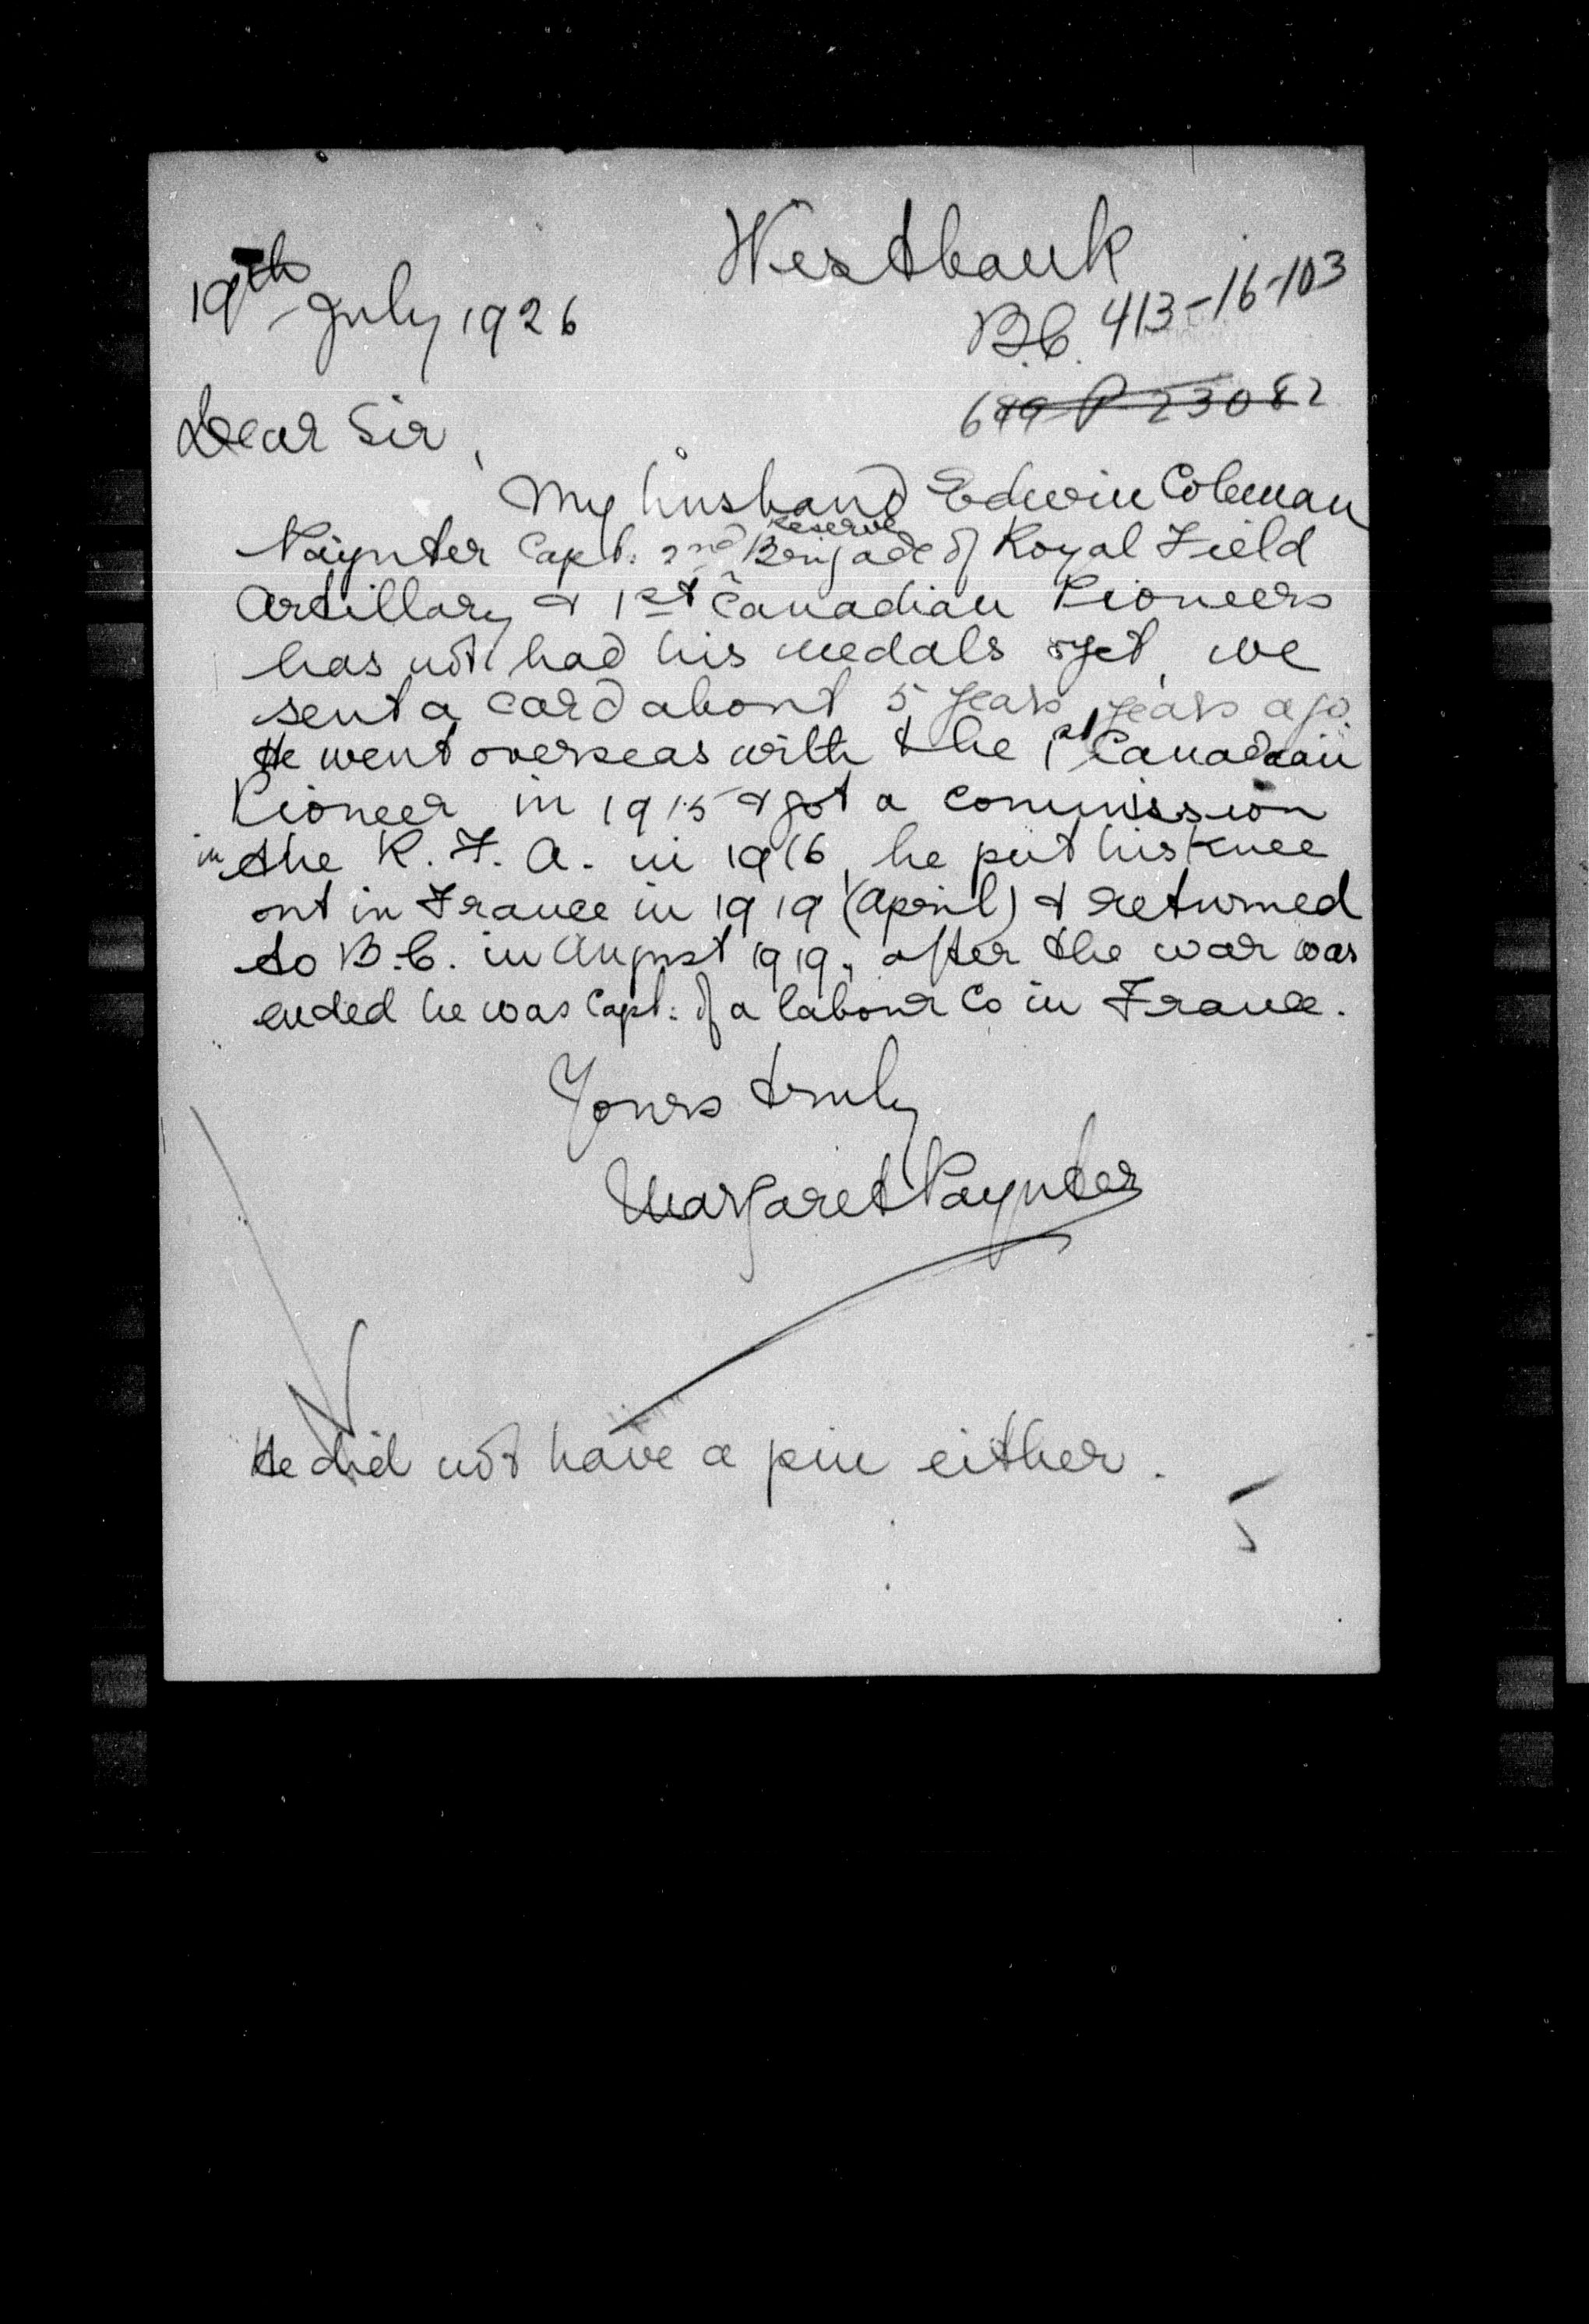 Westbank
19th July 1926
B.C. 413-16-103
649 P 23082
Dear Sir,
My husband Edwin Coleman
Paynter Capt. 2nd Reserve Brigade of Royal Field
Artillary & 1st Canadian Pioneers
has not had his medals yet, we
sent a card about 5 years years ago.
He went overseas with the 1st Canadian
Pioneer in 1915 & got a commission
in the R. F. A. in 1916, he put his knee
out in France in 1919 (April) & returned
to B.C. in August 1919, after the war was
ended he was Capt. of a labour Co in France.
Yours truly
Margaret Paynter
He did not have a pin either.